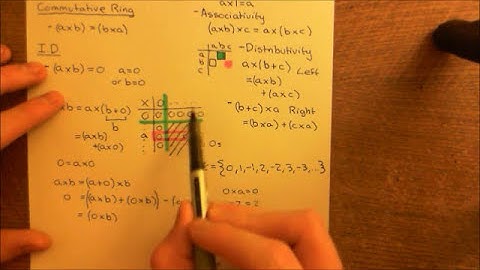 Commutative Ring
- (axb) = (bxa)
I D
- (axb) = 0 a=0
or b=0
axb = ax(b+0)
b
= (axb)
+ (ax0)
0 = ax0
axb = (a+0)xb
0 = (axb) + (0xb)
= (0xb)
X 0
0 0 0 0 0
0
a 0
0
ax1=a
- Associativity
(axb)xc = ax(bxc)
a b c
a
b
c
- Distributivity
ax(b+c) Left
= (axb)
+ (axc)
- (b+c)xa Right
= (bxa) + (cxa)
0s
= {0,1,-1,2,-2,3,-3,...}
0xa=0
= 2